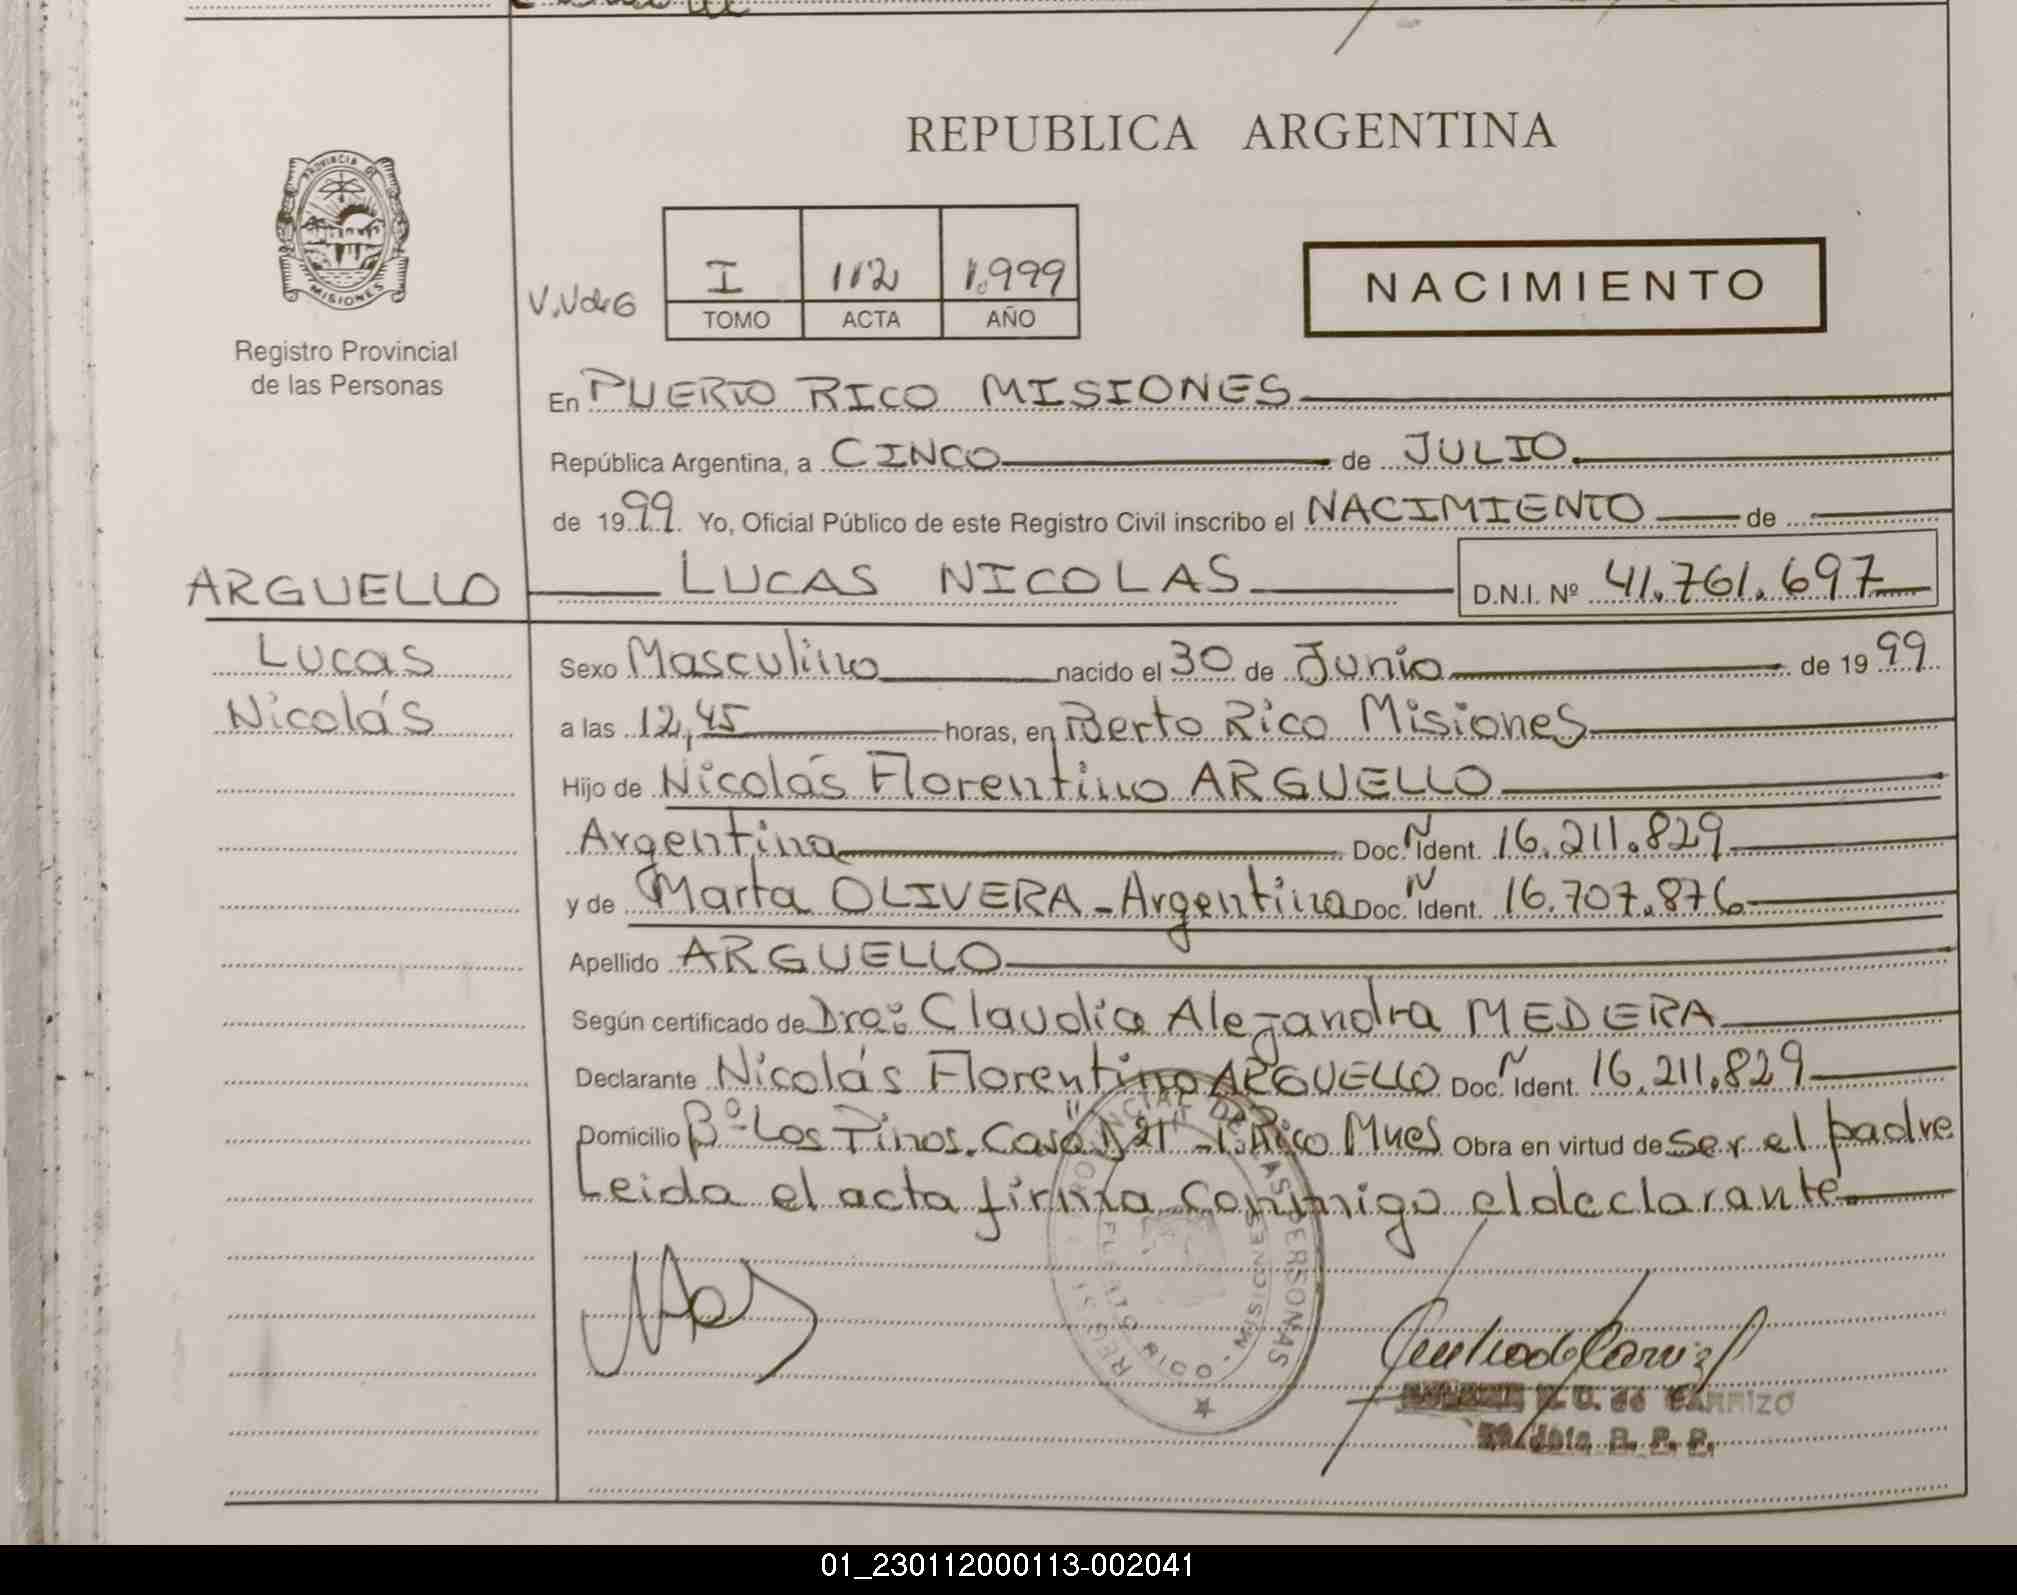 REPUBLICA ARGENTINA
PROVINCIA DE
MISIONES
Registro Provincial
de las Personas
V.V de G
I 112 1.999
TOMO ACTA AÑO
NACIMIENTO
En PUERTO RICO MISIONES
República Argentina, a CINCO de JULIO.
de 1999. Yo, Oficial Público de este Registro Civil inscribo el NACIMIENTO de
ARGUELLO LUCAS NICOLAS D.N.I. Nº 41.761.697
Lucas
Nicolás
Sexo Masculino nacido el 30 de Junio de 1999
a las 12,45 horas, en Perto Rico Misiones
Hijo de Nicolás Florentino ARGUELLO
Argentina Doc. Ñ Ident. 16.211.829
y de Marta OLIVERA - Argentina Doc. N Ident. 16.707.876
Apellido ARGUELLO
Según certificado de Dra: Claudia Alejandra MEDERA
Declarante Nicolás Florentino ARGUELLO Doc. Ñ Ident. 16.211.829
Domicilio Bº Los Pinos. Casa 21 - P. Rico Mnes Obra en virtud de ser el padre
Leida el acta firma conmigo el declarante.
MISIONES
PERSONAS
U. de CARRIZO
R. P. P.
01_230112000113-002041